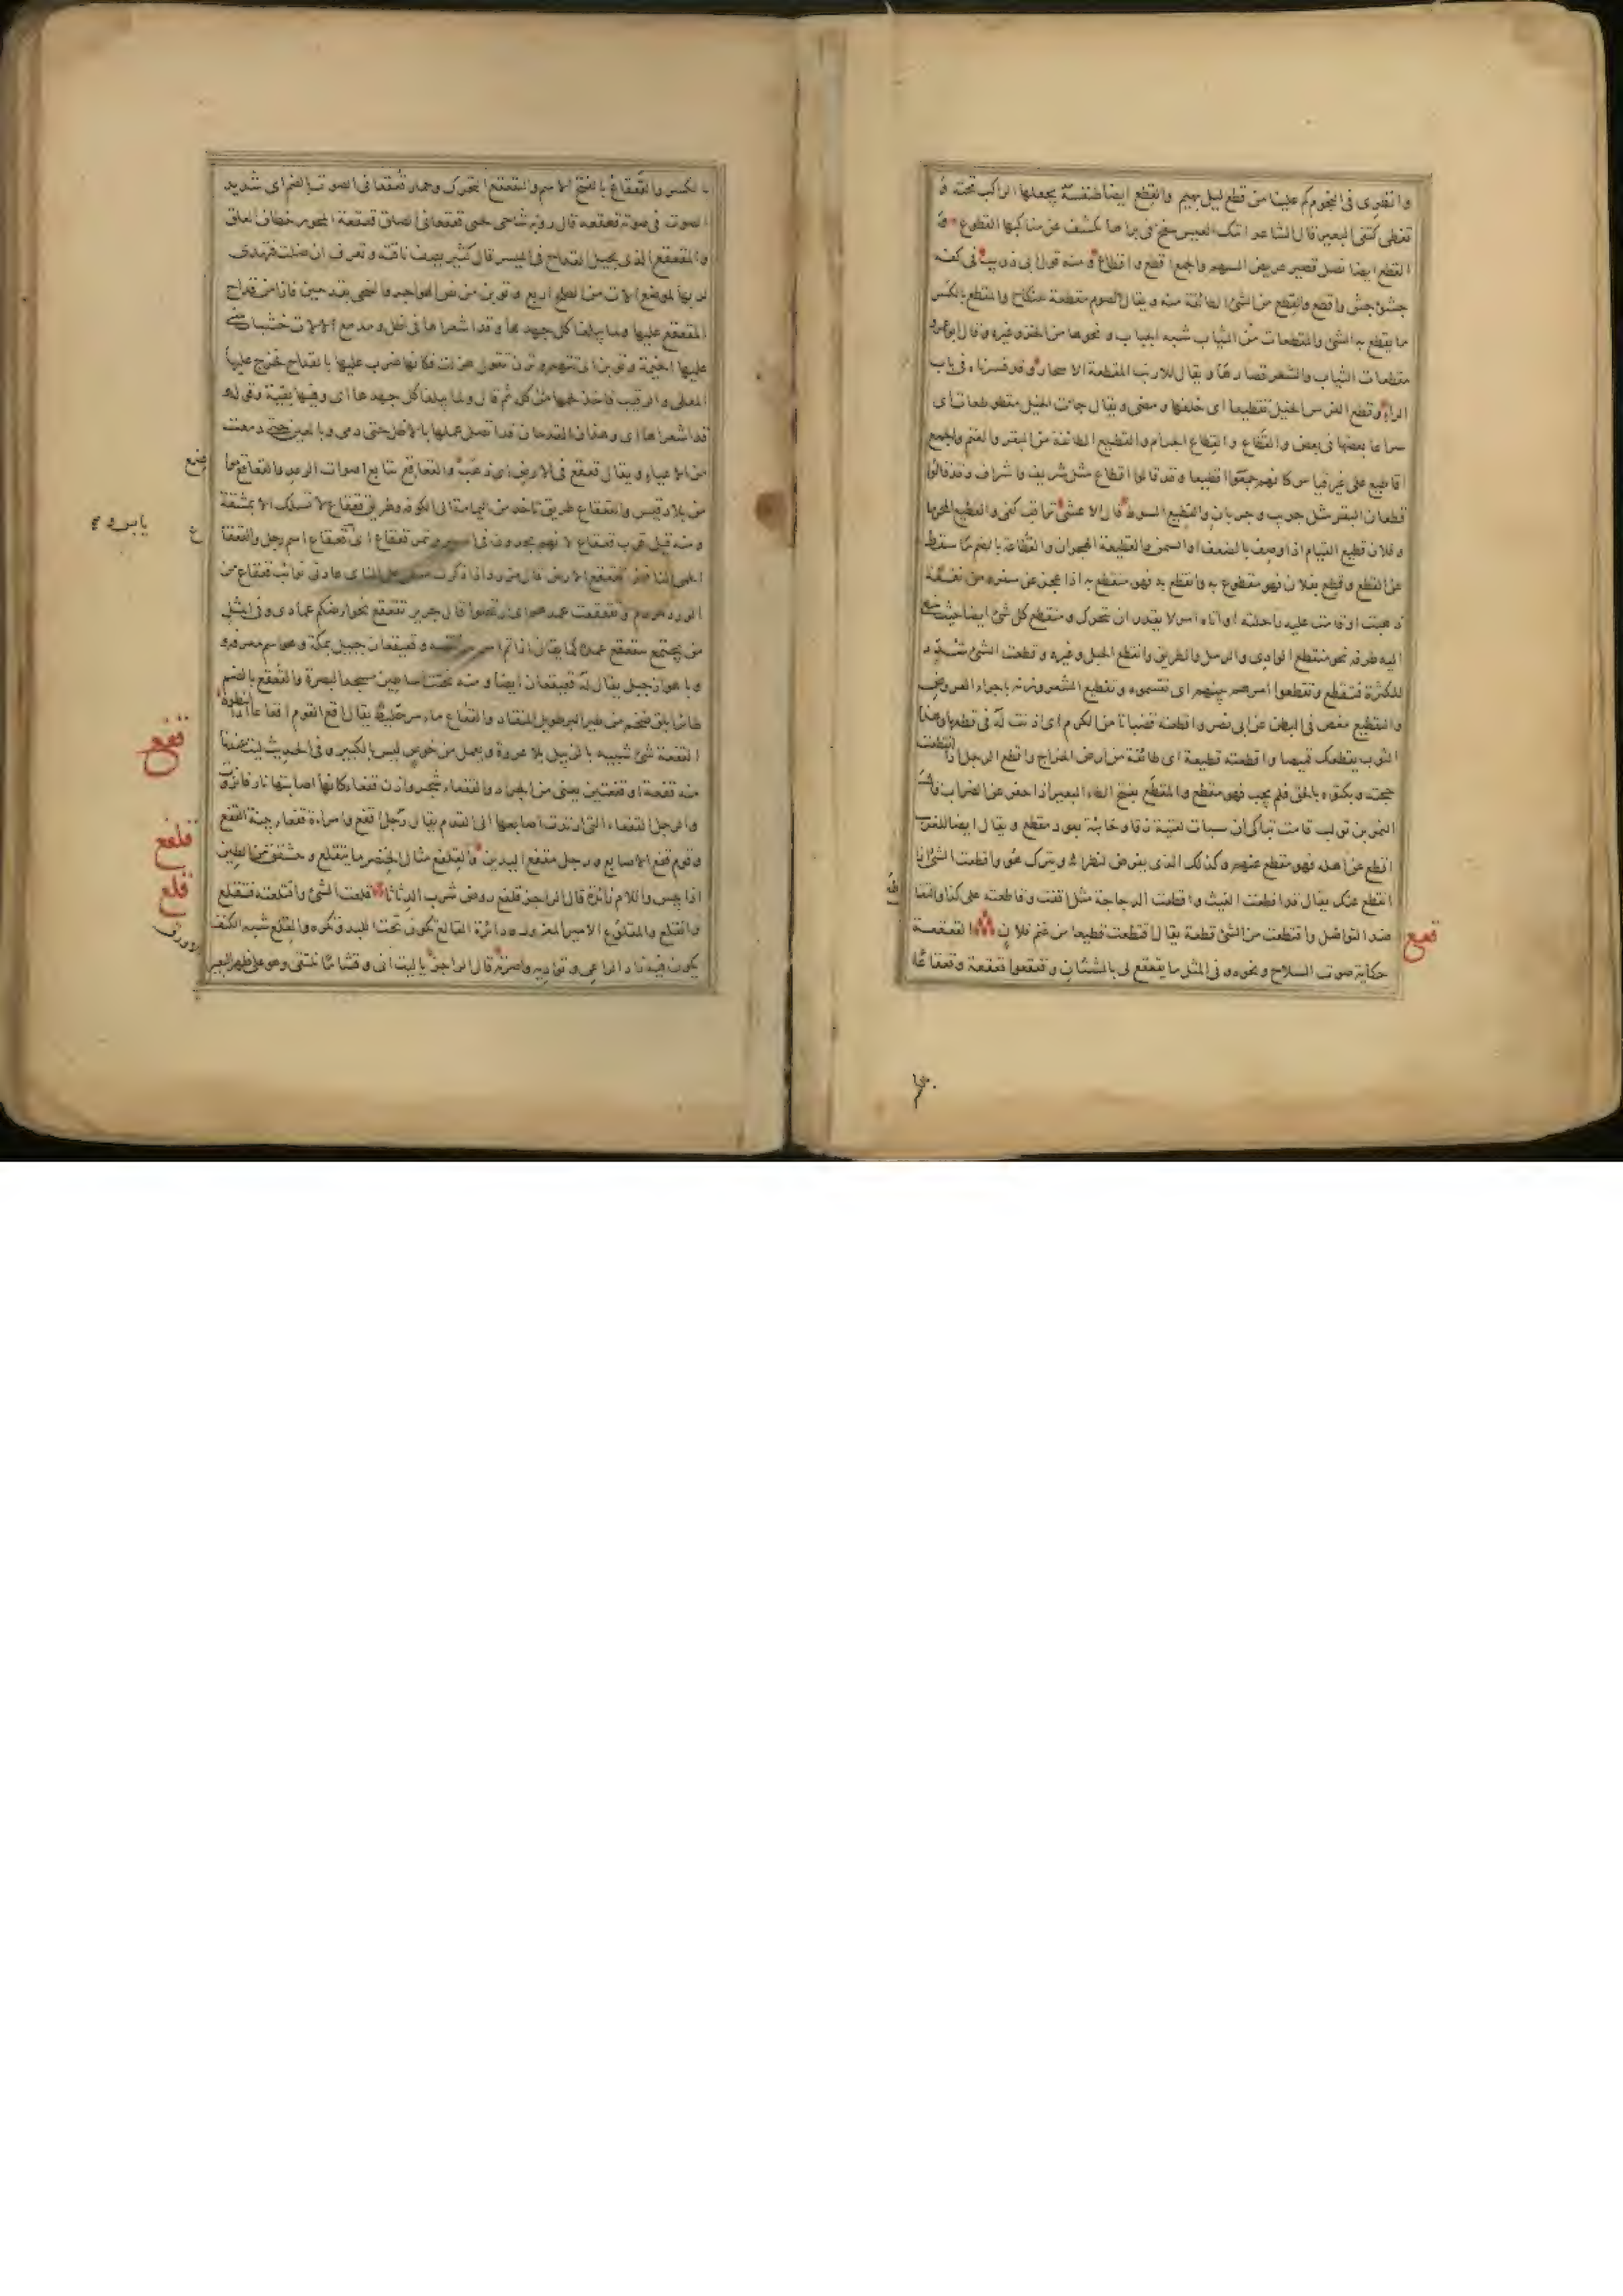 وانظري في النجوم كم علينا من قطع ليل بهيم والقطع ايضا طنفسة يجعلها الراكب تحته و
تغطي كتفي البعير قال الشاعر اتتك العيس تنفخ في براها تكشف عن مناكبها القطوع و
القطع ايضا نصل قصير عريض السهم والجمع اقطع واقطاع ومنه قول ابي ذويب في كفه
جشئ جش واقطع والقطع من الشئ الطائفة منه ويقال الصوم مقطعة للنكاح والمقطع بالكسر
ما يقطع به الشئ والمقطعات من الثياب شبه الجباب ونحوها من الخز وغيره وقال ابو عمرو
مقطعات الثياب والشعر قصارها ويقال للارنب المقطعة الاسحار وقد فسرناه في باب
الراء وقطع الفرس الخيل تقطيعا اى خلفها ومضى ويقال جاءت الخيل مقطوطعات اى
سراعا بعضها في بعض والقطاع والقطاع الجرام والقطيع الطائفة من البقر والغنم والجمع
اقاطيع على غير قياس كانهم جمعوا اقطيعا وقد قالوا اقطاع مثل شريف واشراف وقد قالوا
قطعان البقر مثل جريب وجربان والقطيع السوط قال الاعشى تراقب كفي والقطيع المحرما
وفلان قطيع القيام اذا وصف بالضعف او السمن والقطيعة الهجران والقطاعة بالضم ما سقط
عن القطع وقطع بفلان فهو مقطوع به وانقطع به فهو منقطع به اذا عجز عن سفره من نفقة
ذهبت او قامت عليه راحلته او اتاه امر لا يقدر ان يتحرك ومنقطع كل شئ ايضا حيث ينتهي
اليه طرفه نحو منقطع الوادى والرمل والطريق وانقطع الحبل وغيره وقطعت الشئ شدد
للكثرة فتقطع وتقطعوا امرهم بينهم اى تقسموه وتقطيع الشعر وزنه باجزاء العروض
والتقطيع مغص في البطن عن ابي نصر واقطعته قضبانا من الكرم اى اذنت له في قطعها وهذا
الثوب يقطعك قميصا واقطعته قطيعة اى طائفة من ارض الخراج واقطع الرجل اذا انقطعت
حجته وبكتوه بالحق فلم يجب فهو مقطع والمقطع بفتح الطاء البعير اذا جفر عن الضراب قال
النمر بن تولب قامت تباكى ان سبات لفتية زقا وخابية بعود مقطع ويقال ايضا للغريب
اقطع عن اهله فهو مقطع عنهم وكذلك الذى يفرض لنظرائه ويترك هو واقطعت الشئ اذا
انقطع عنك يقال قد اقطعت الغيث واقطعت الدجاجة مثل اقفت وقاطعته على كذا والتقاطع
ضد التواصل واقتطعت من الشئ قطعة يقال اقتطعت قطيعا من غنم فلان القعقعة
قعع
حكاية صوت السلاح ونحوه وفي المثل ما يقعقع لي بالشنان وقعقعوا قعقعة وقعقاعا
بالكسر والقعقاع بالفتح الاسم والتقعقع التحرك وحمار قعقعاني الصوت بالضم اى شديد
الصوت في صوته قعقعة قال روبة شاحى لحيي قعقعاني الصلق قعقعة المحور خطاف العلق
والمقعقع الذى يجيل القداح في الميسر قال كثير يصف ناقته وتعرف ان ضلت فتهدى
لربها لموضع الات من الطلح اربع وتوبن من نص الهواجر والضحى بقدحين فازا من قداح
المقعقع عليها ولما يبلغا كل جهدها وقد اشعراها في اظل ومدمع الالات خشبات
عليها الخيمة وتوبن اى تتهم وتزن تقول هزلت فكانها ضرب عليها بالقداح فخرج عليها
المعلى والرقيب فاخذ لحمها كله ثم قال ولما يبلغا كل جهدها اى وفيها بقية وقوله
قد اشعراها اى وهذان القدحان قد اتصل عملهما بالاظل حتى دمى وبالعين حتى دمعت
من الاعياء ويقال تقعقع في الارض اى ذهب والقعاقع تتابع اصوات الرعد والقعاقع
من بلاد قيس والقعقاع طريق تاخذ من اليمامة الى الكوفة وطريق قعقاع لا تسلك الا بمشقة
ومنه قيل قرب قعقاع لانهم يجدون في السير وتمر قعقاع اى القعقاع اسم رجل والقعقاع
من يجتمع يتقعقع عمده كما يقال اذا تم امر وقعيقعان جبل بمكة وهو اسم معرفة
وبالاهواز جبل يقال له قعيقعان ايضا ومنه نحتت اساطين مسجد البصرة والقعقع بالضم
طائر ابلق ضخم من طير البر طويل المنقار والقعاع ماء مر غليظ يقال اقع القوم اقعاعا انبطوه
قفع
القفعة شئ شبيه بالزبيل بلا عروة ويعمل من خوص ليس بالكبير وفي الحديث ليت عندنا
منه قفعة او قفعتين يعنى من الجراد والقفعاء شجر واذن قفعاء كانها اصابتها نار فانزوت
والرجل القفعاء التي ارتدت اصابعها الى القدم يقال رجل اقفع وامراة قفعاء بينة القفع
قلفع
وقوم قفع الاصابع ورجل مقفع اليدين والقلفع مثال الخنصر ما يتقلع ويتشقق من الطين
قلع
اذا يبس واللام زائدة قال الراجز قلفع روض شرب الدثاثا قلعت الشئ واقتلعته فتقلع
وانقلع والمقلوع الامير المعزول ودائرة القالع تكون تحت اللبد وتكره والقلع شبه الكنف
يكون فيه زاد الراعي وتواديه واصرته قال الراجز يا ليت اني وقشاما نلتقي وهو على ظهر البعير
الاورق